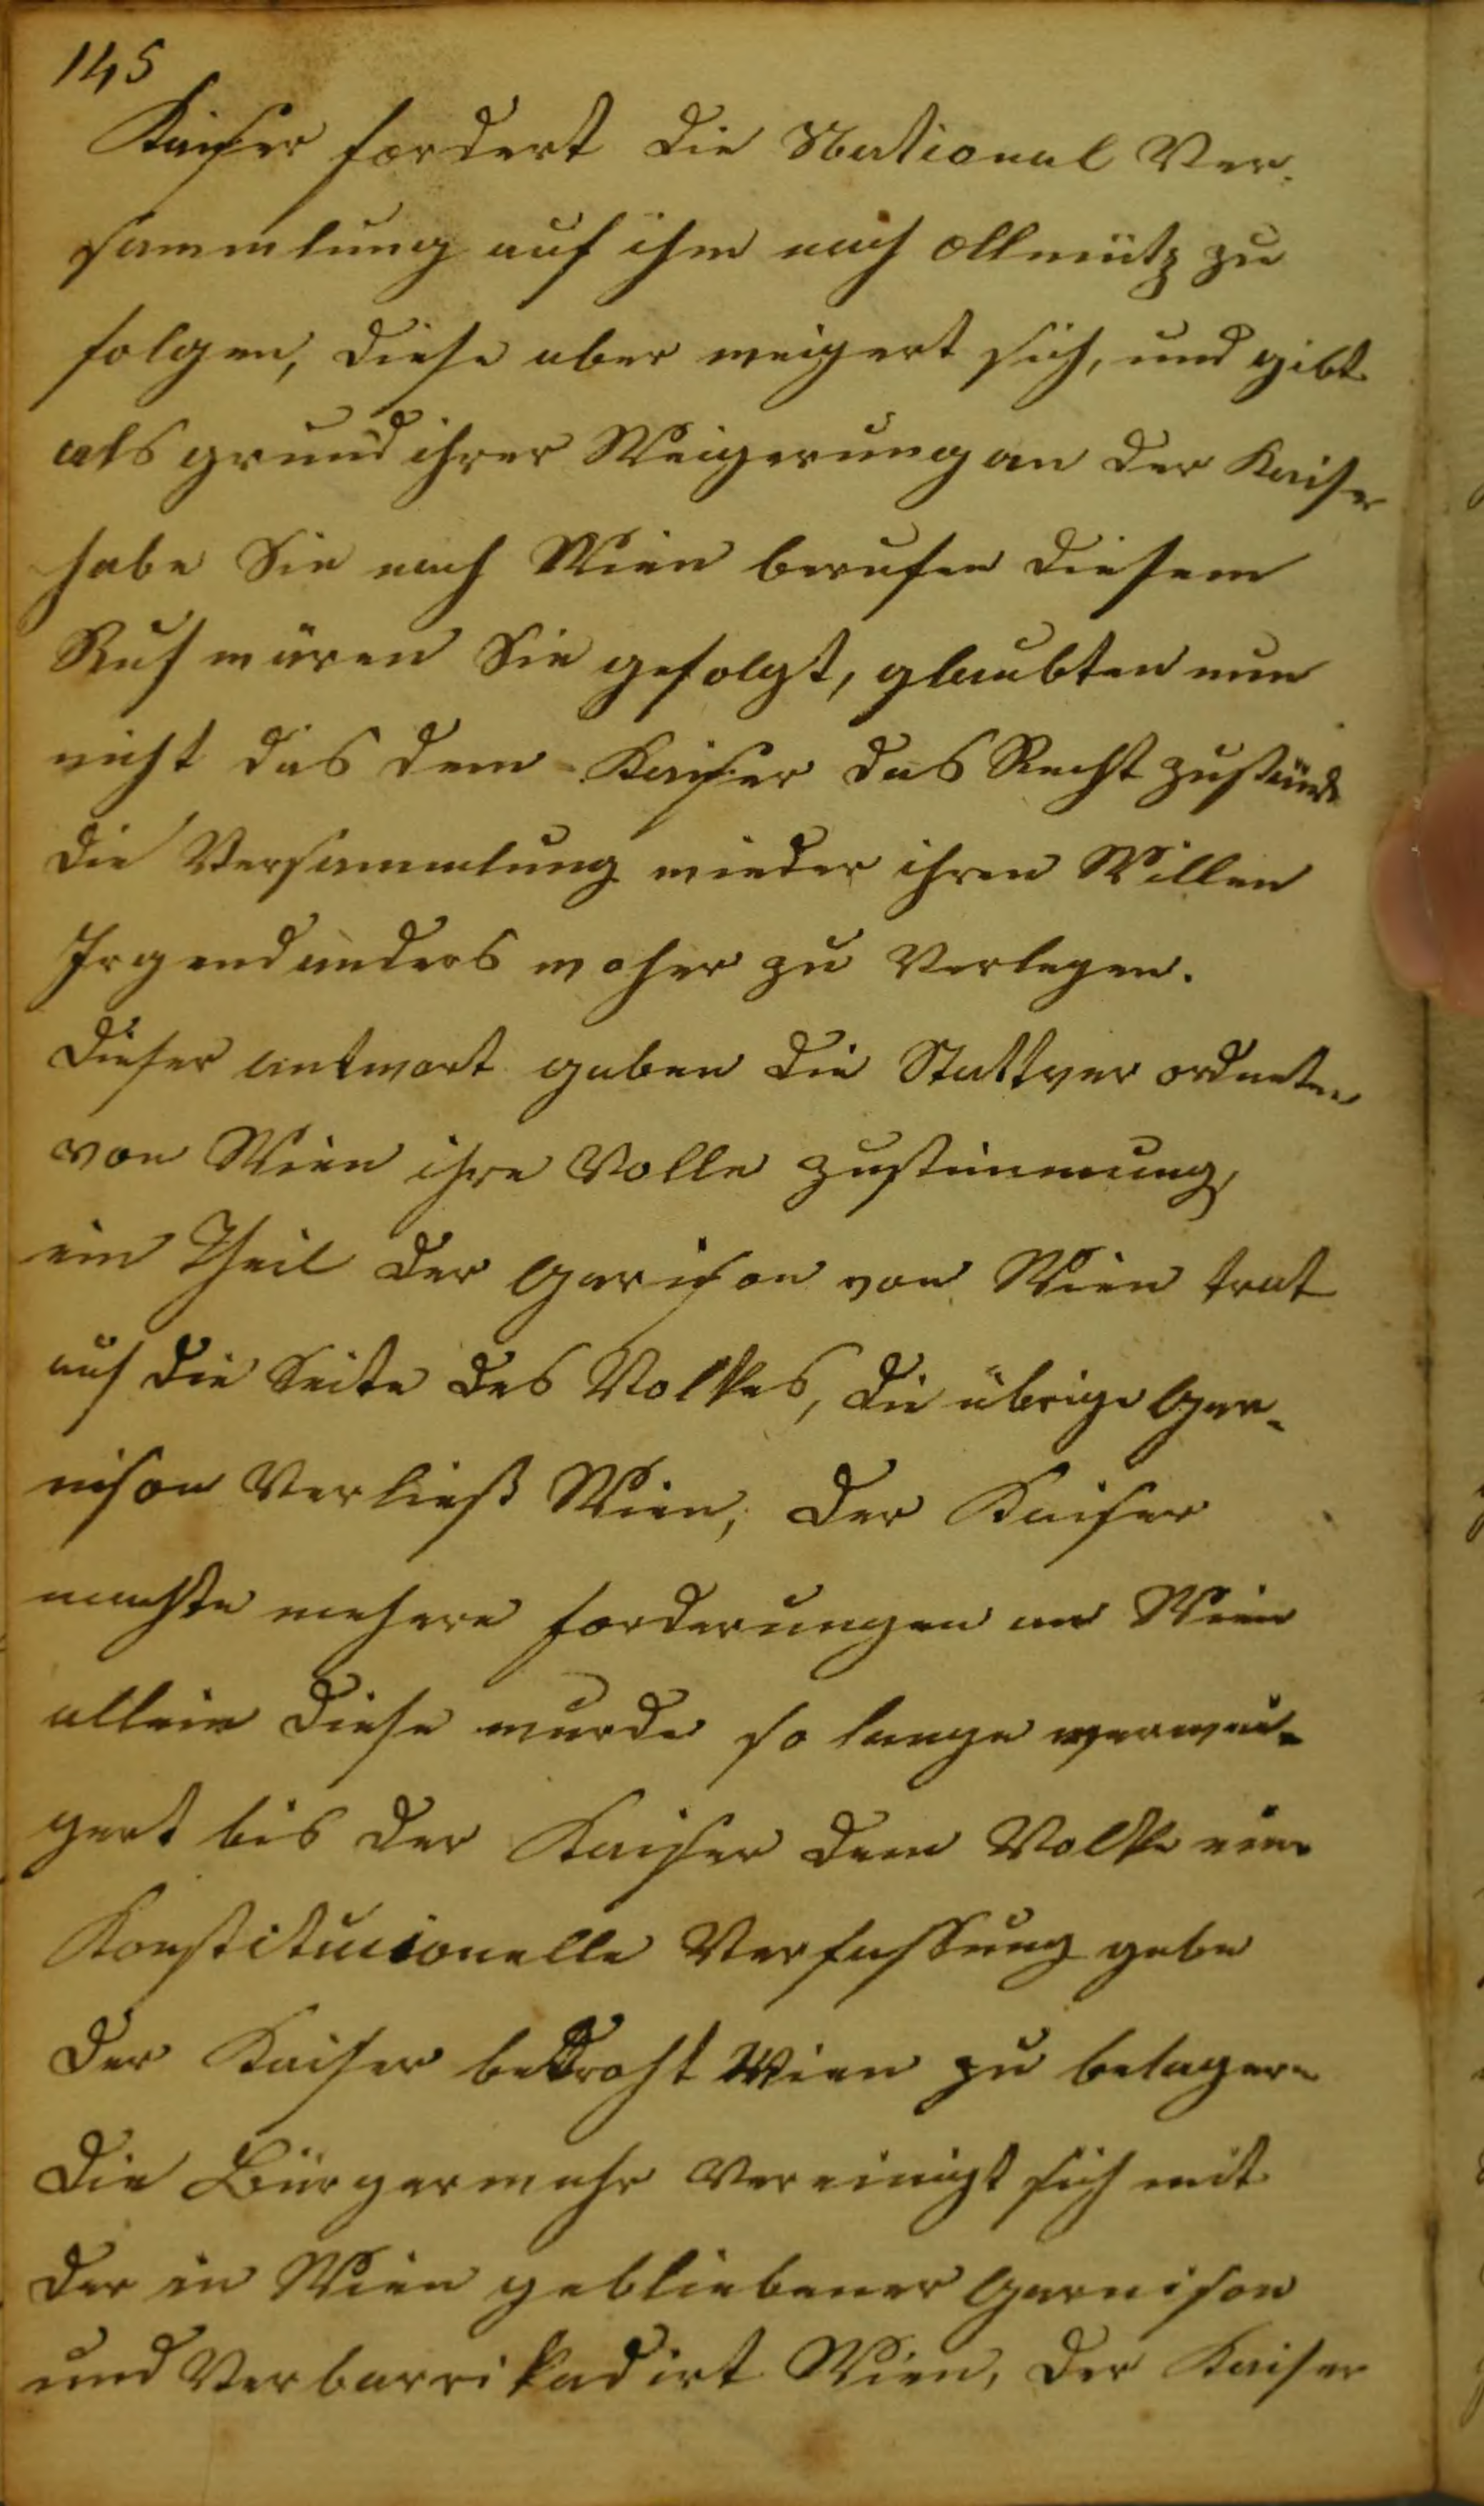 145
Kaiser fordert die National Ver-
sammlung auf ihm nach Ollmütz zu
folgen, diese aber weigert sich, und gibt
als grund ihrer Weigerung an der Kaiser
habe Sie nach Wien berufen diesem
Ruf wären Sie gefolgt, glaubten nun
nicht das dem Kaiser das Recht zustände
die Versammlung wieder ihren Willen
Irgend anders woher zu Verlegen.
Dieser antwort gaben die Stattver ordneten
von Wien ihre Volle zustimmung,
ein Theil der Garison von Wien trat
auf die Seite des Volkes, die übrige Gar-
nison Verließ Wien, der Kaiser
machte mehere forderungen an Wien
allein diese wurde so lange verwei-
gert bis der Kaiser dem Volke eine
Konstitucionelle Verfassung gebe
der Kaiser bedroht Wien zu belagern
die Bürgerwehr Vereinigt sich mit
der in Wien gebliebener Garnison
und Verbarrikadirt Wien, der Kaiser